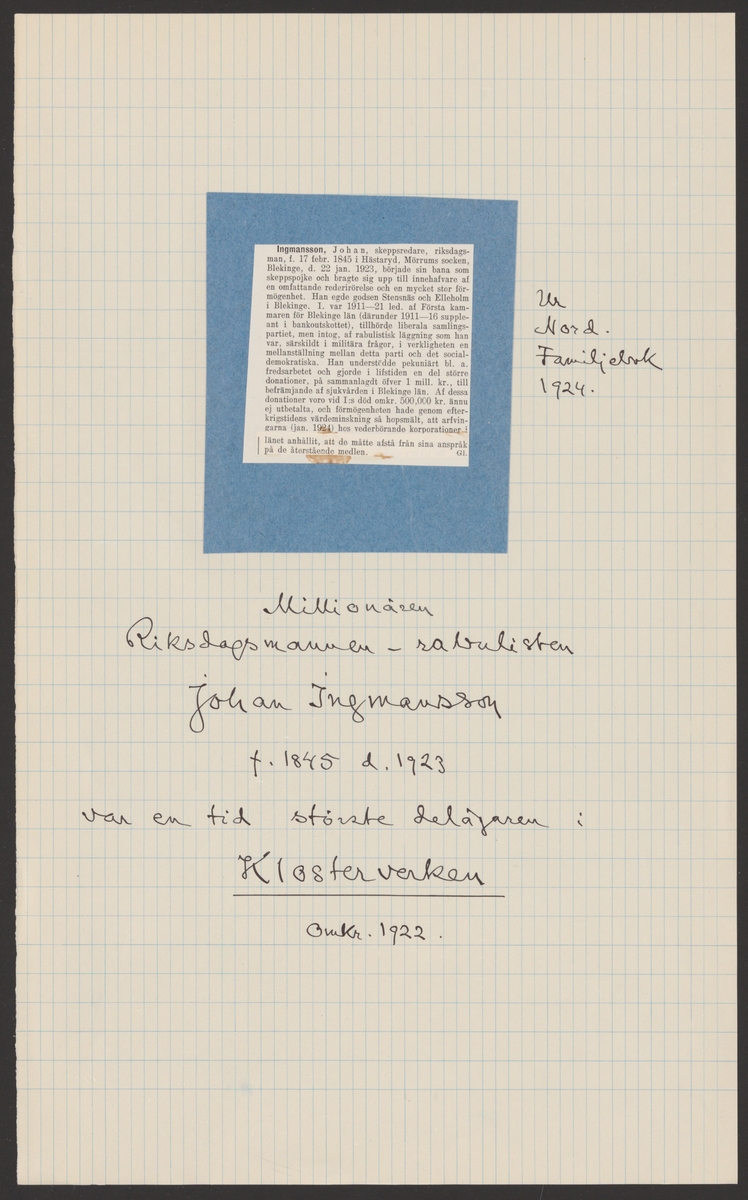 Ingmansson, Johan, skeppsredare, riksdags-
man, f. 17 febr. 1845 i Hästaryd, Mörrums socken,
Blekinge, d. 22 jan. 1923, började sin bana som
skeppspojke och bragte sig upp till innehafvare af
en omfattande rederirörelse och en mycket stor för-
mögenhet. Han egde godsen Stensnäs och Elleholm
i Blekinge. I. var 1911—21 led. af Första kam-
maren för Blekinge län (därunder 1911—16 supple-
ant i bankoutskottet), tillhörde liberala samlings-
partiet, men intog, af rabulistisk läggning som han
var, särskildt i militära frågor, i verkligheten en
mellanställning mellan detta parti och det social-
demokratiska. Han understödde pekuniärt bl. a.
fredsarbetet och gjorde i lifstiden en del större
donationer, på sammanlagdt öfver 1 mill. kr., till
befrämjande af sjukvården i Blekinge län. Af dessa
donationer voro vid I:s död omkr. 500,000 kr. ännu
ej utbetalta, och förmögenheten hade genom efter-
krigstidens värdeminskning så hopsmält, att arfvin-
garna (jan. 1924) hos vederbörande korporationer i
länet anhållit, att de måtte afstå från sina anspråk
på de återstående medlen. Gl.
Ur
Nord.
Familjebok
1924.
Millionären
Riksdagsmannen – rabulisten
Johan Ingmansson
f. 1845 d. 1923
var en tid störste delägaren i
Klosterverken
Omkr. 1922.